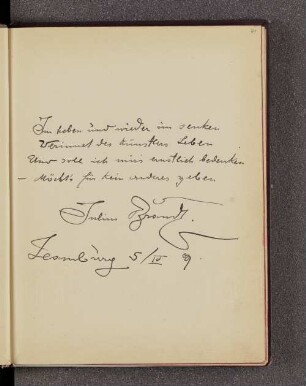 Im heben und wieder im senken
Verinnat des Künstlers Leben
Und soll ich mirs ernstlich bedenken
– Möcht's für kein anderes geben
Julius Brandt.
Hamburg 5/IV 9.